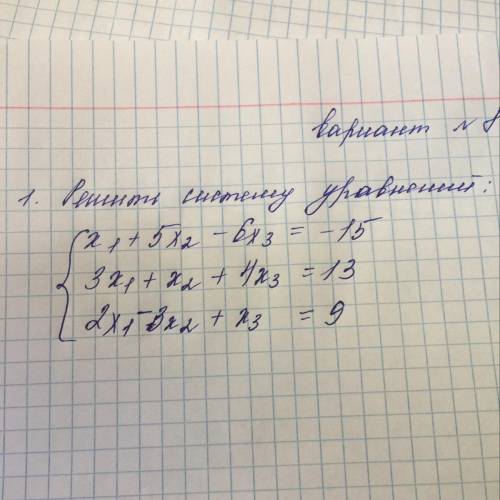 вариант № 8
1. Решить систему уравнений:
x₁ + 5x₂ - 6x₃ = -15
3x₁ + x₂ + 4x₃ = 13
2x₁ - 3x₂ + x₃ = 9